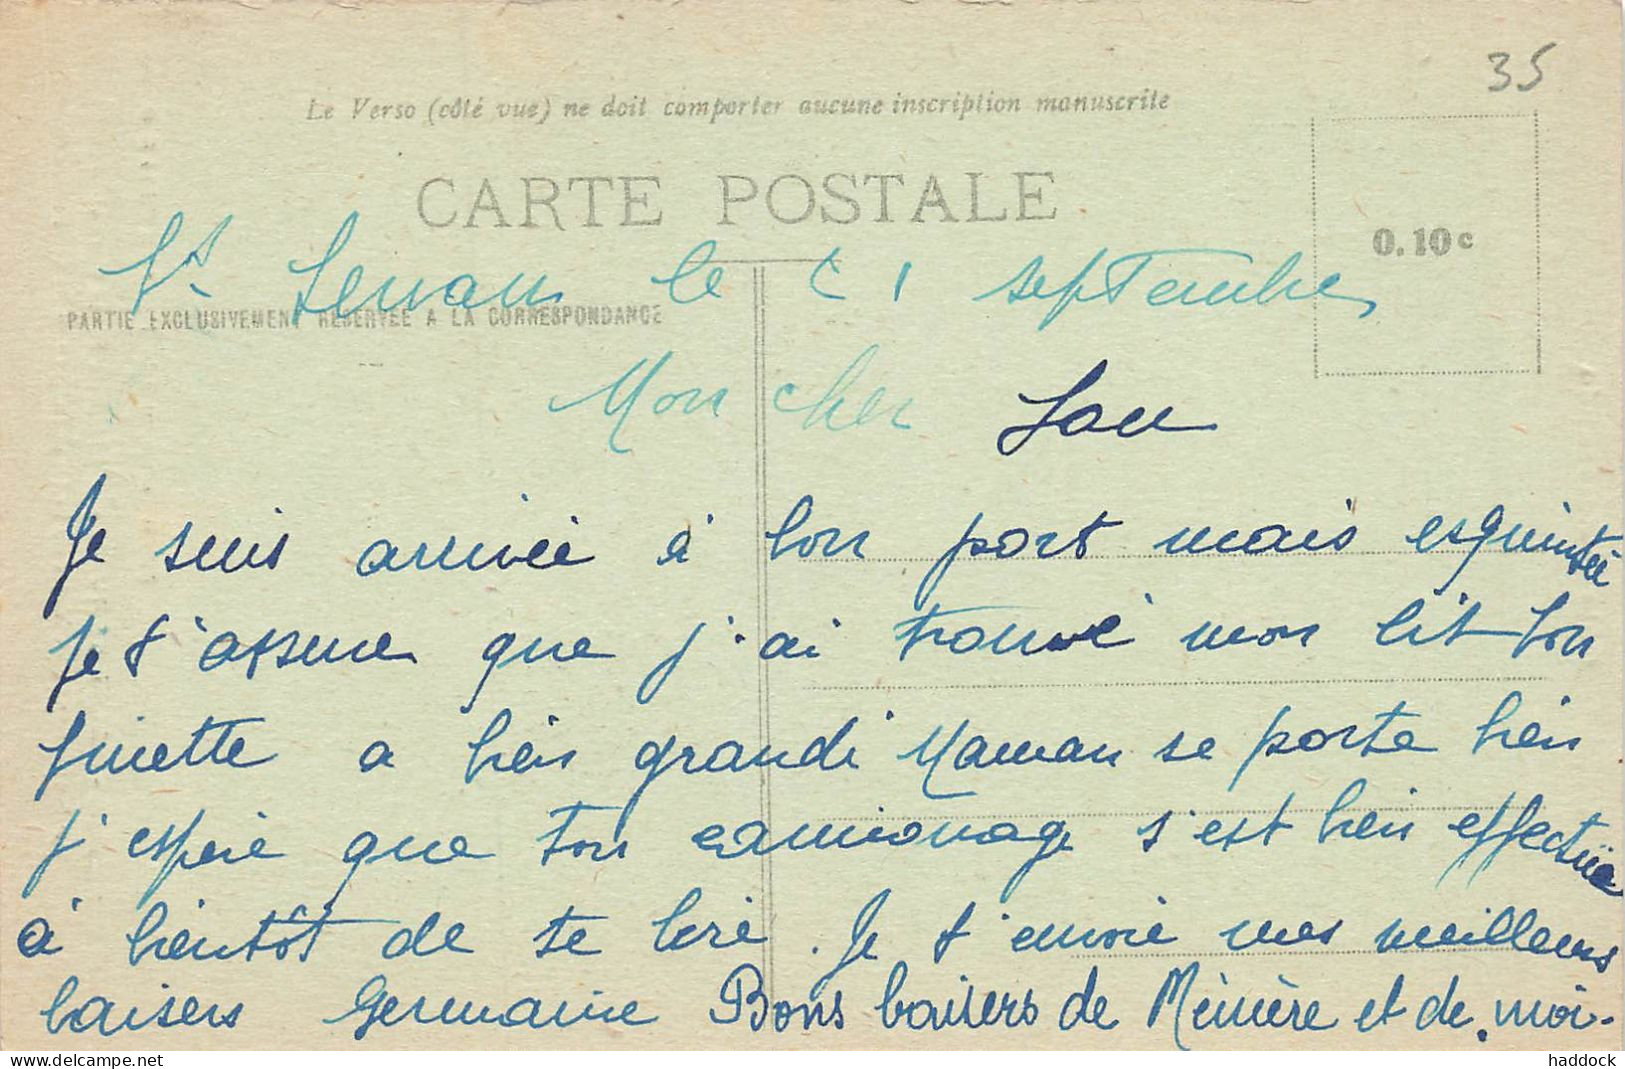 35
Le Verso (côté vue) ne doit comporter aucune inscription manuscrite
CARTE POSTALE
0.10c
St Servan le 21 septembre
PARTIE EXCLUSIVEMENT RÉSERVÉE A LA CORRESPONDANCE
Mon cher
Je suis arrivée à bon port mais esquintée
je t'assure que j'ai trouvé mon lit bon
Ginette a bien grandi Maman se porte bien
j'espère que ton camionage s'est bien effectué
à bientôt de te lire. Je t'envoie mes meilleurs
baisers Germaine Bons baisers de Mémère et de moi.
delcampe.net
haddock